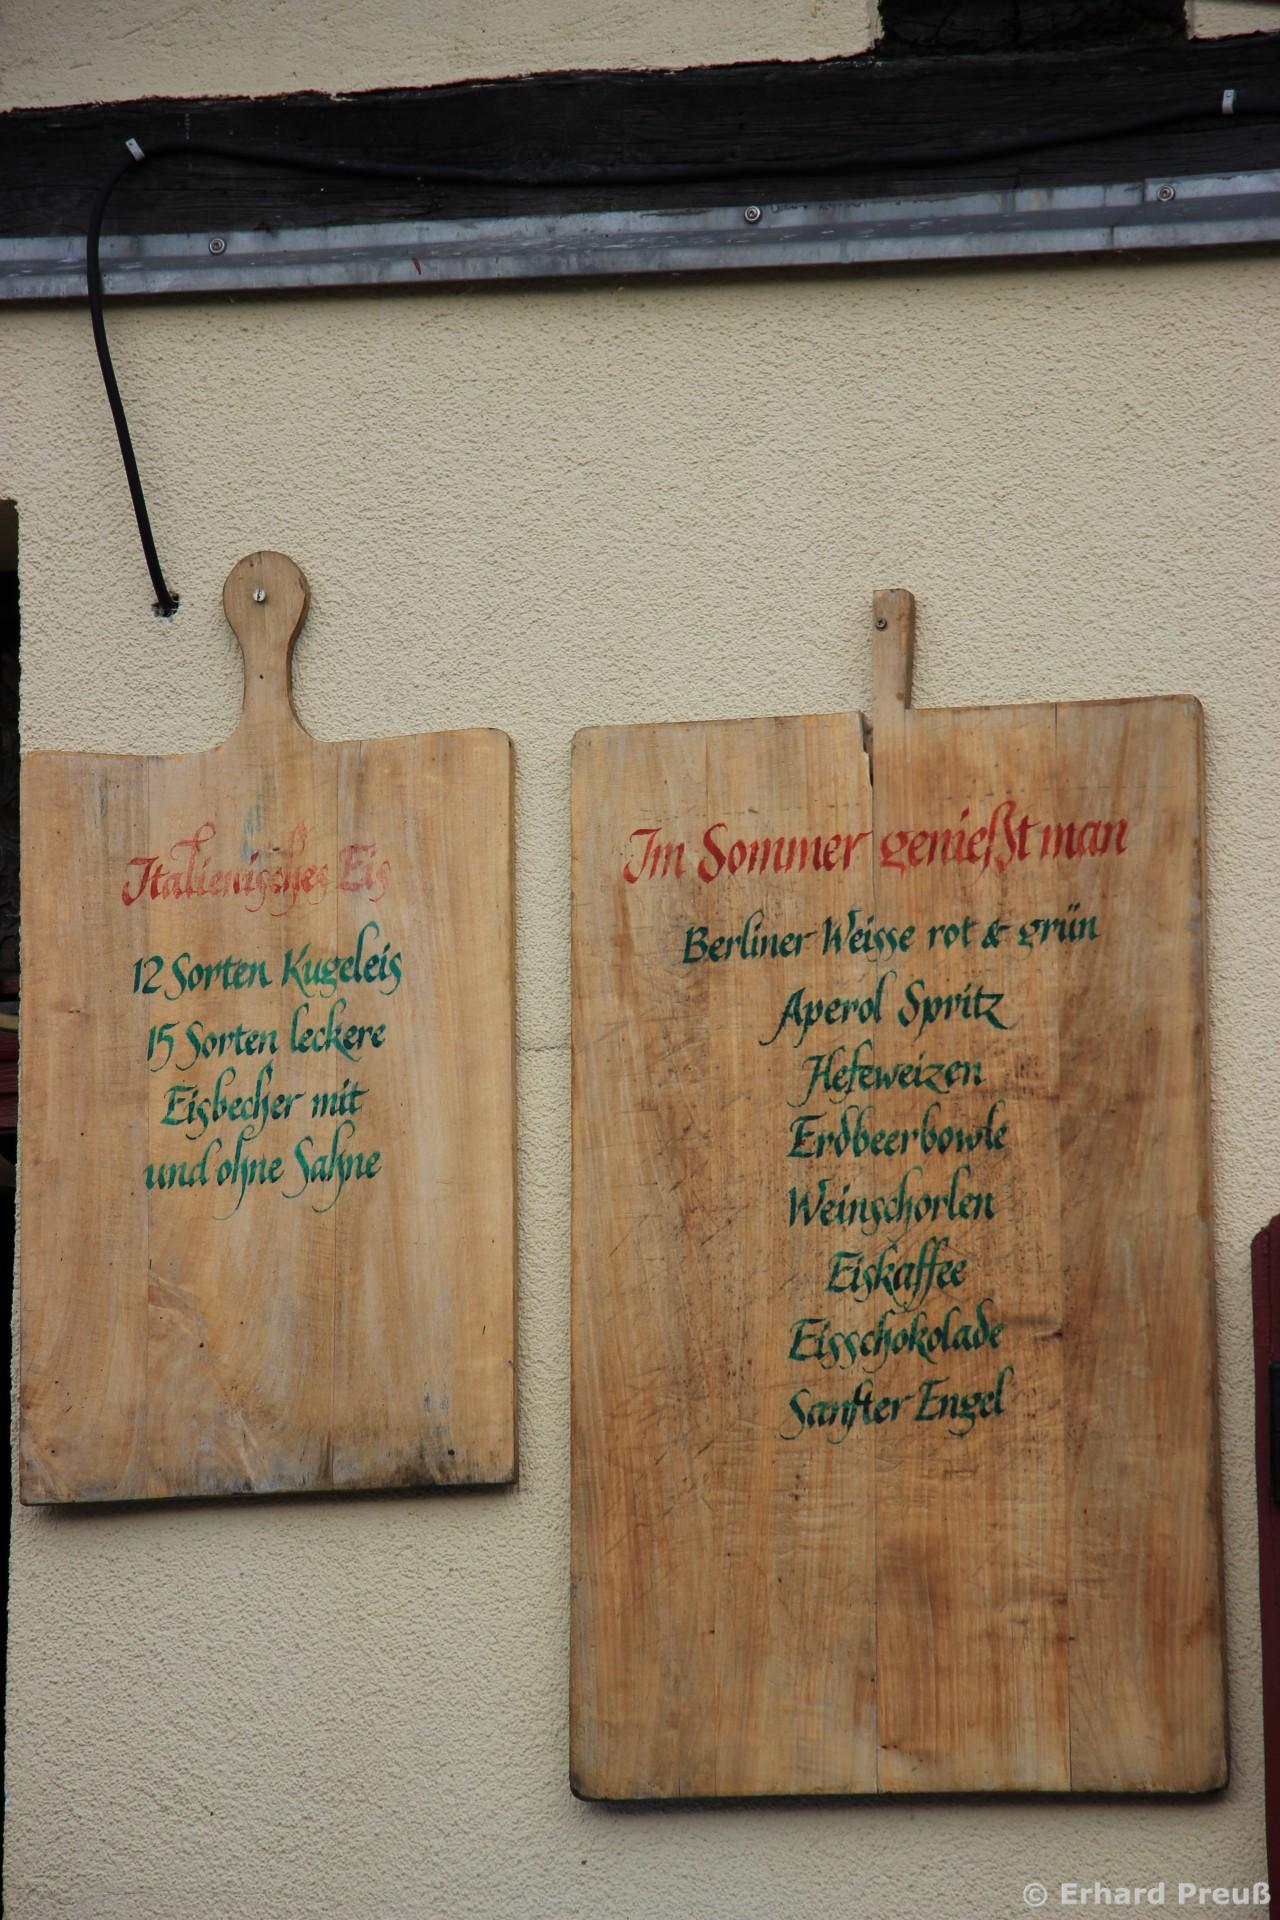 Italienisches Eis
12 Sorten Kugeleis
15 Sorten leckere
Eisbecher mit
und ohne Sahne
Im Sommer genießt man
Berliner Weisse rot & grün
Aperol Spritz
Hefeweizen
Erdbeerbowle
Weinschorlen
Eiskaffee
Eisschokolade
Sanfter Engel
© Erhard Preuß